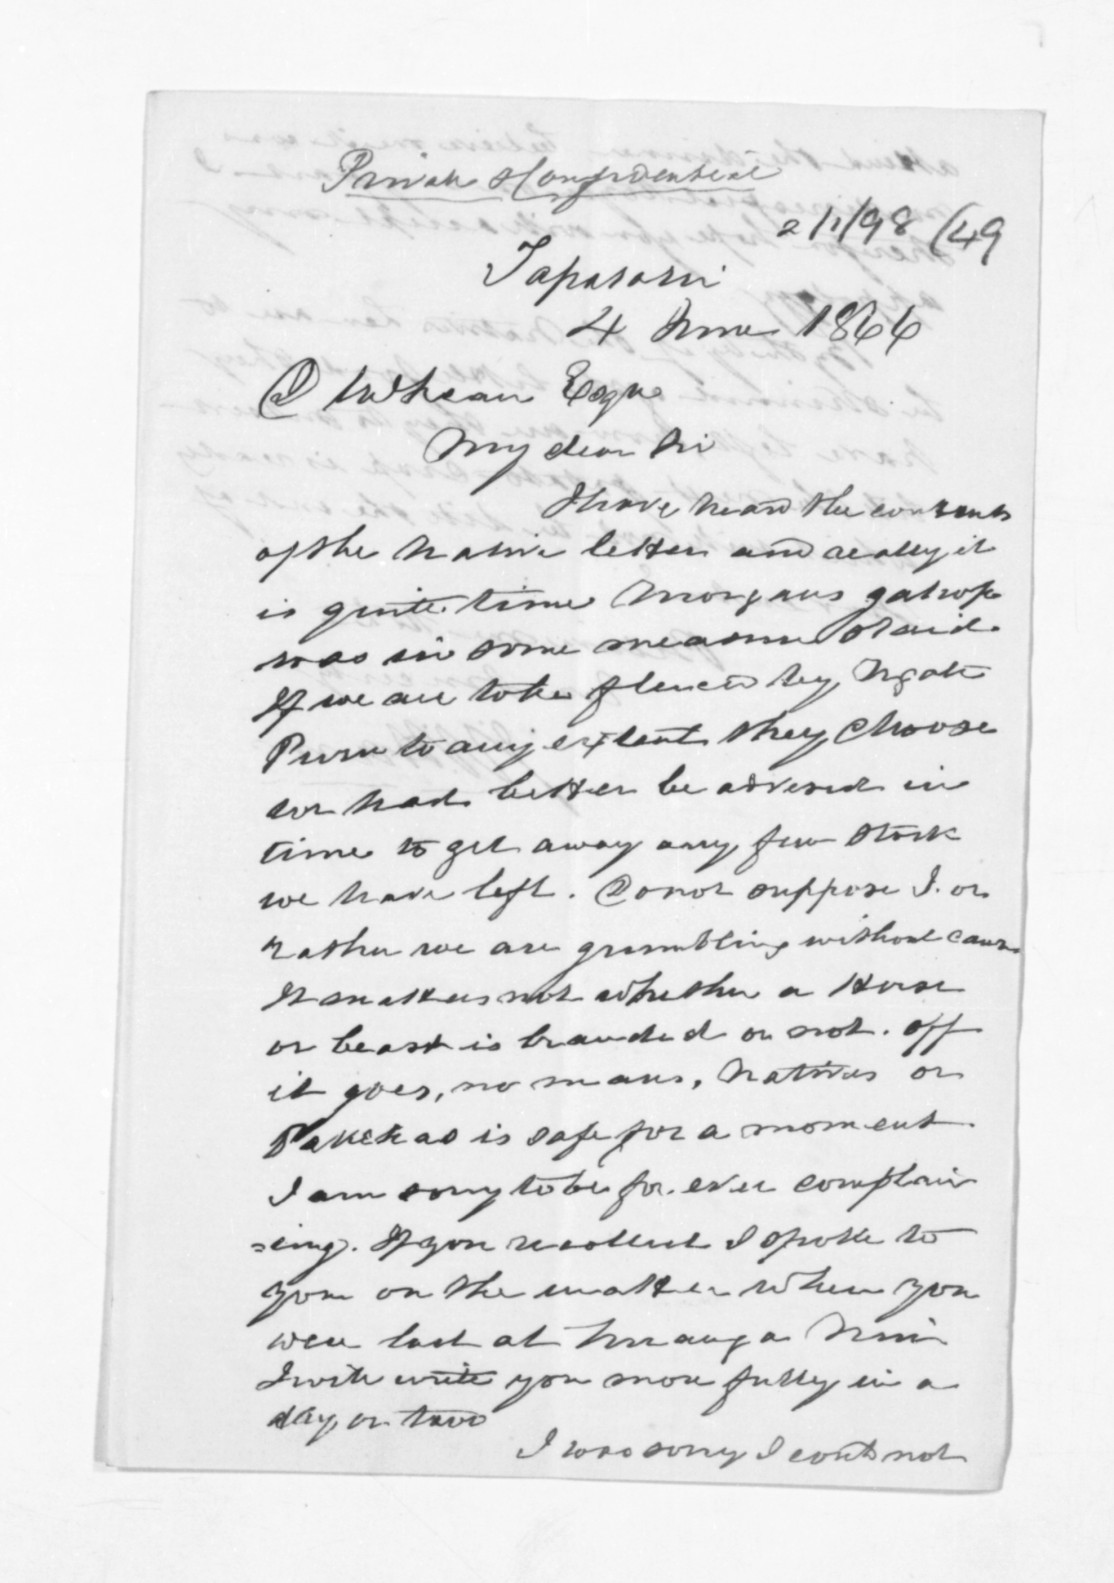 Private & Confidential
2/1/98 (49
Taparorui
4 June 1866
D McLean Esqre
My dear Sir
I have heard the contents
of the Native letter and really it
is quite time Morgans gallop
was in some measure staid.
If we are to be fleeced by Ngati
Puru to any extent they choose
we had better be advised in
time to get away any few stock
we have left. Do not suppose I. or
rather we are grumbling without cause
It matters not whether a Horse
or beast is branded or not. off
it goes, no mans, Natives or
Pakehas is safe for a moment.
I am sorry to be for ever complain
=ing. If you recollect I spoke to
you on the matter when you
were last at Maunga Nui
I will write you more fully in a
day or two
I was sorry I could not